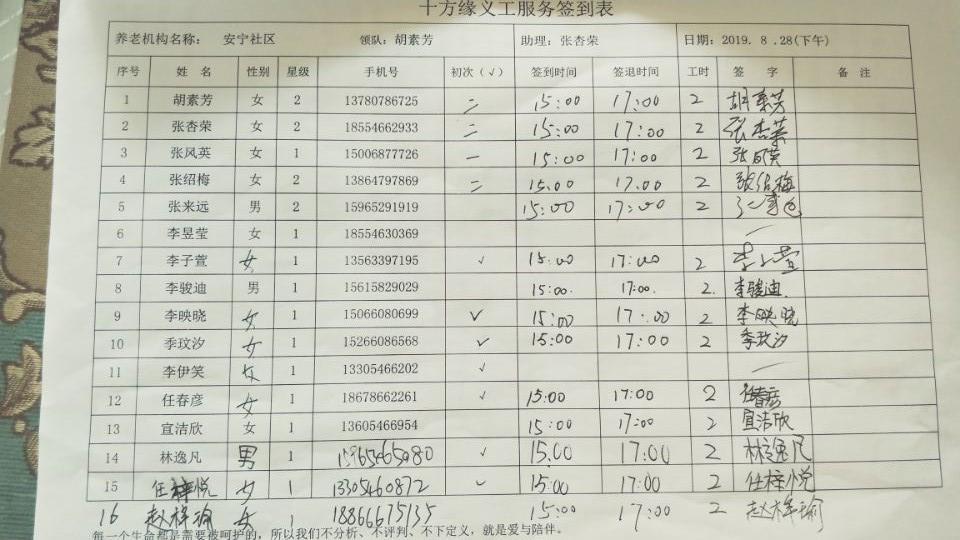 十方缘义工服务签到表
养老机构名称: 安宁社区 领队: 胡素芳 助理: 张杏荣 日期: 2019. 8 .28(下午)
序号 姓 名 性别 星级 手机号 初次(√) 签到时间 签退时间 工时 签 字 备 注
1 胡素芳 女 2 13780786725 二 15:00 17:00 2 胡素芳
2 张杏荣 女 2 18554662933 二 15:00 17:00 2 张杏荣
3 张风英 女 1 15006877726 一 15:00 17:00 2 张风英
4 张绍梅 女 2 13864797869 二 15:00 17:00 2 张绍梅
5 张来远 男 2 15965291919 15:00 17:00 2
6 李昱莹 女 1 18554630369 —
7 李子萱 女 1 13563397195 √ 15:00 17:00 2 李子萱
8 李骏迪 男 1 15615829029 15:00. 17:00. 2. 李骏迪.
9 李映晓 女 1 15066080699 √ 15:00 17:00 2 李映晓
10 季玟汐 女 1 15266086568 √ 15:00 17:00 2 季玟汐
11 李伊笑 女 1 13305466202 √ —
12 任春彦 女 1 18678662261 √ 15:00 17:00 2 任春彦
13 宣洁欣 女 1 13605466954 15:00 17:00 2 宣洁欣
14 林逸凡 男 1 15965465980 √ 15:00 17:00 2 林逸凡
15 任梓悦 女 1 13305460872 √ 15:00 17:00 2 任梓悦
16 赵梓瑜 女 1 18866675135 15:00 17:00 2 赵梓瑜
每一个生命都是需要被呵护的,所以我们不分析、不评判、不下定义,就是爱与陪伴。